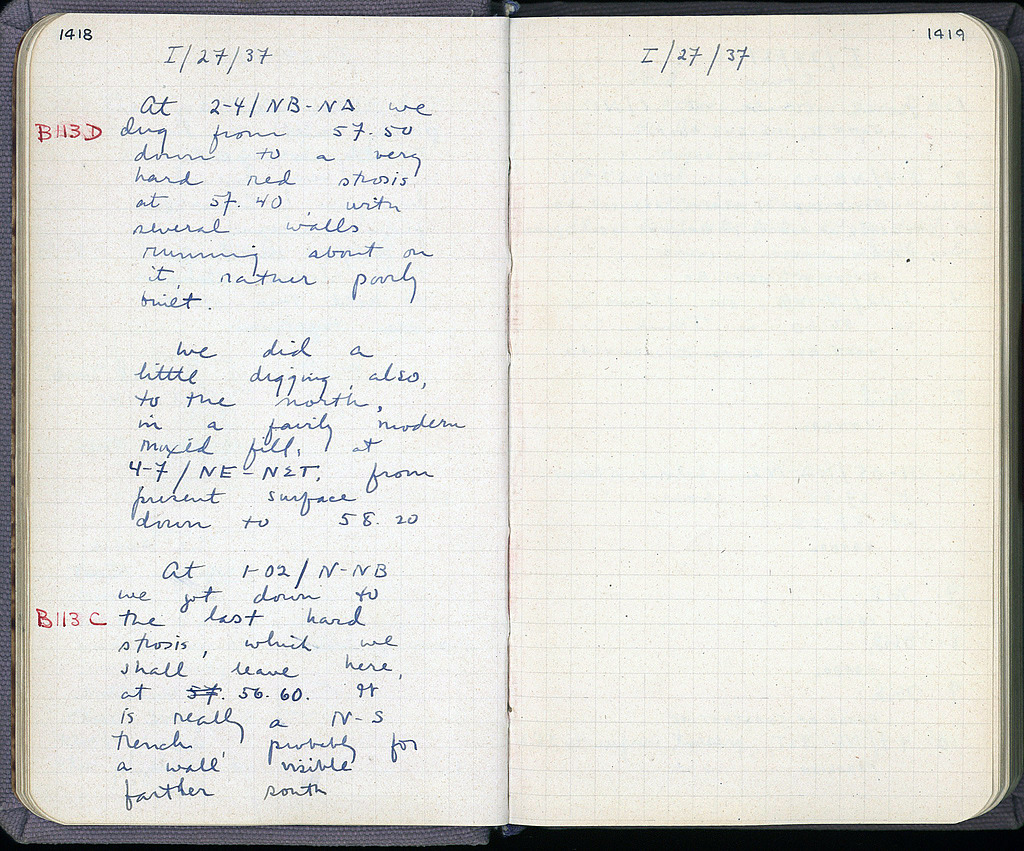 1418
I/27/37
At 2-4/NB-NΔ we
B113D dug from 57.50
down to a very
hard red strosis
at 57.40, with
several walls
running about on
it, rather poorly
built.
We did a
little digging, also,
to the north,
in a fairly modern
mixed fill, at
4-7/NE-NΣT, from
present surface
down to 58.20
At 1-02/N-NB
we got down to
B113C the last hard
strosis, which we
shall leave here,
at 57. 56.60. It
is really a N-S
trench, probably for
a wall visible
farther south
1419
I/27/37